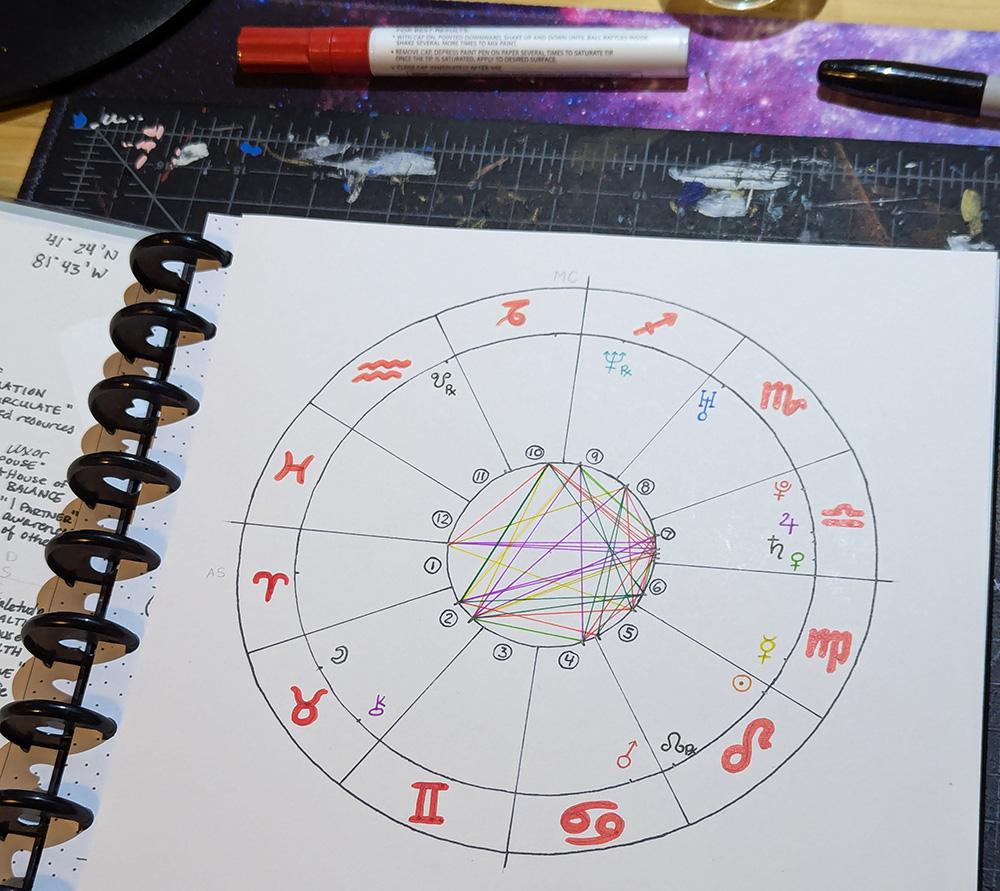 FOR BEST RESULTS:
• WITH CAP ON, POINTED DOWNWARD, SHAKE UP AND DOWN UNTIL BALL RATTLES INSIDE
SHAKE SEVERAL MORE TIMES TO MIX PAINT.
• REMOVE CAP, DEPRESS PAINT PEN ON PAPER SEVERAL TIMES TO SATURATE TIP.
ONCE THE TIP IS SATURATED, APPLY TO DESIRED SURFACE.
• CLOSE CAP IMMEDIATELY AFTER USE
41° 24'N
81° 43'W
UXOR
HOUSE OF
BALANCE
1 PARTNER"
of othe
resources
MC
AS
♑ ♐
♒ ♏
♓ ♎
♈ ♍
♉ ♌
♊ ♋
☋℞ ♆℞ ♅
♇
♃
♄ ♀
☽ ☿
⚷ ☉
♂ ☊℞
10 9
11 8
12 7
1 6
2 5
3 4